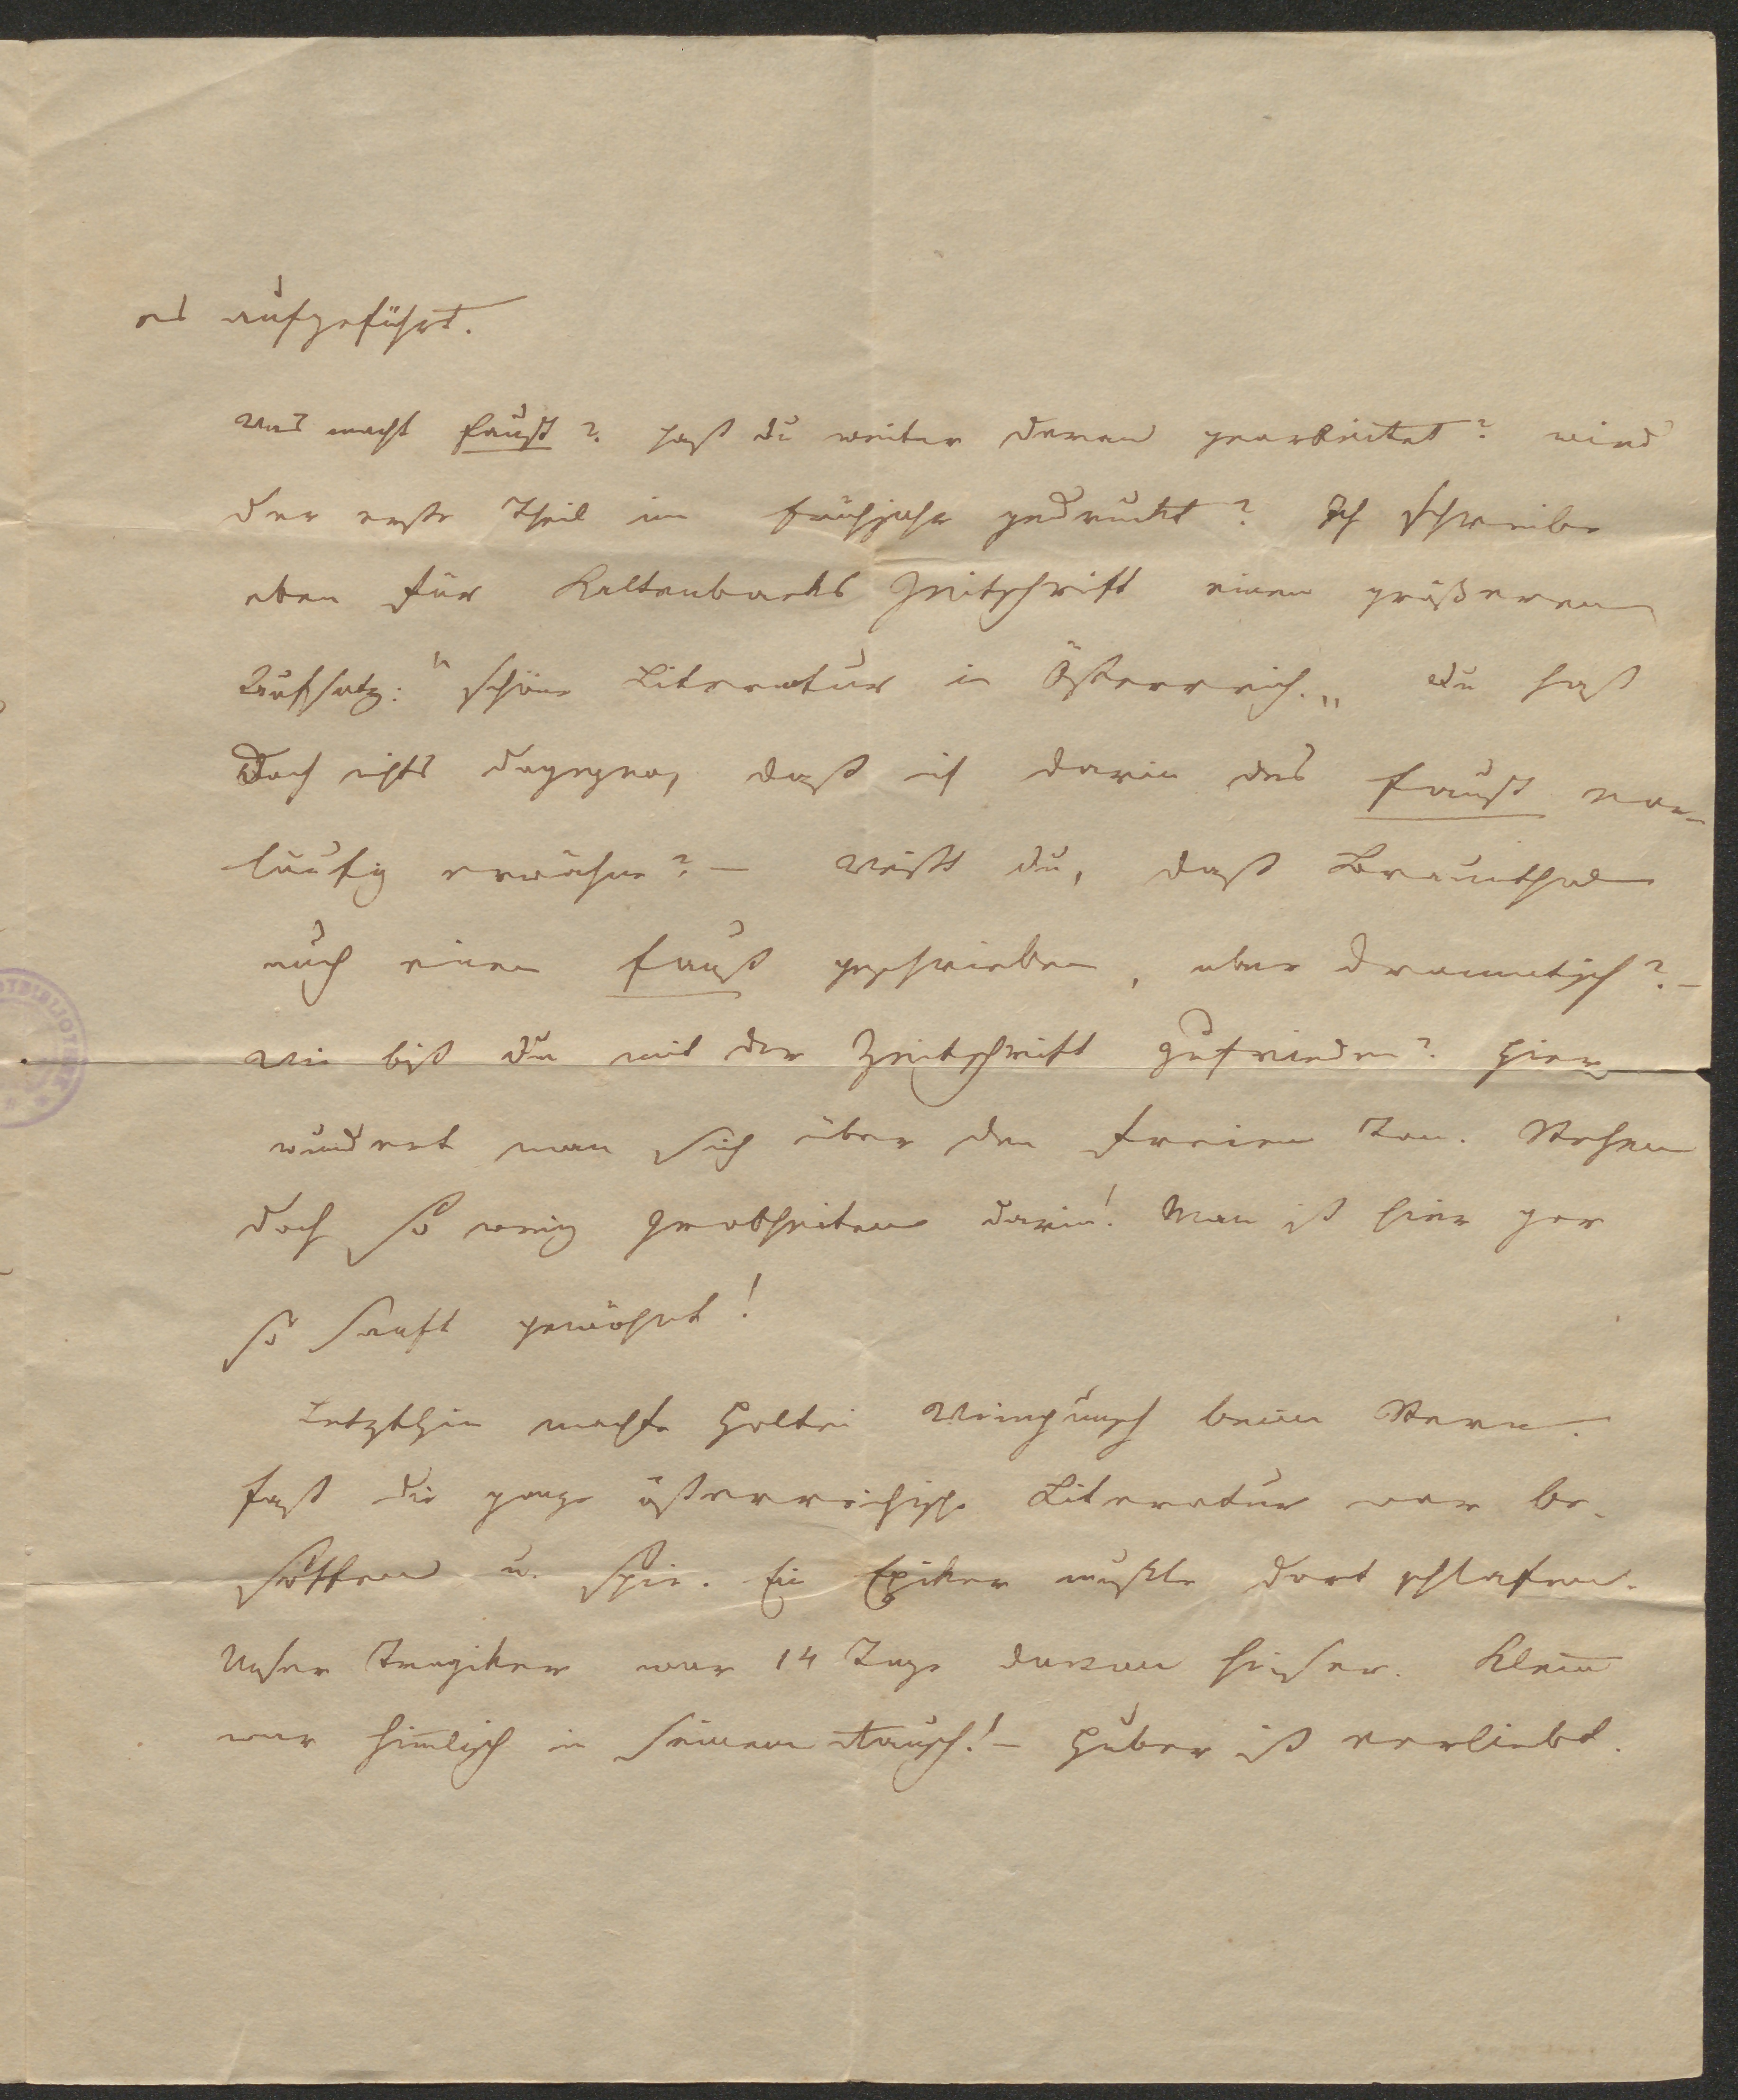 es aufgeführt.
Was macht Faust? hast du weiter daran gearbeitet? wird
der erste Theil im Frühjahr gedruckt? Ich schreibe
eben für Kaltenbaeks Zeitschrift einen größeren
Aufsatz: "schöne Literatur in Österreich." Du hast
doch nichts dagegen, daß ich darin des Faust vor-
läufig erwähne? – Weißt du, daß Braunthal
auch einen Faust geschrieben, aber dramatisch? –
Wie bist du mit der Zeitschrift zufrieden? Hier
wundert man sich über den freien Ton. Stehen
doch so wenig Grobheiten darin! Man ist hier gar
so sanft gewöhnt!
Letzthin machte Holtei Weinpunsch beim Stern.
Fast die ganze österreichische Literatur war be-
soffen u. spie. Ein Epiker mußte dort schlafen.
Unser Tragiker war 14 Tage darnan hinher. Klein
war himlisch in seinem Rausch! – Huber ist verliebt.